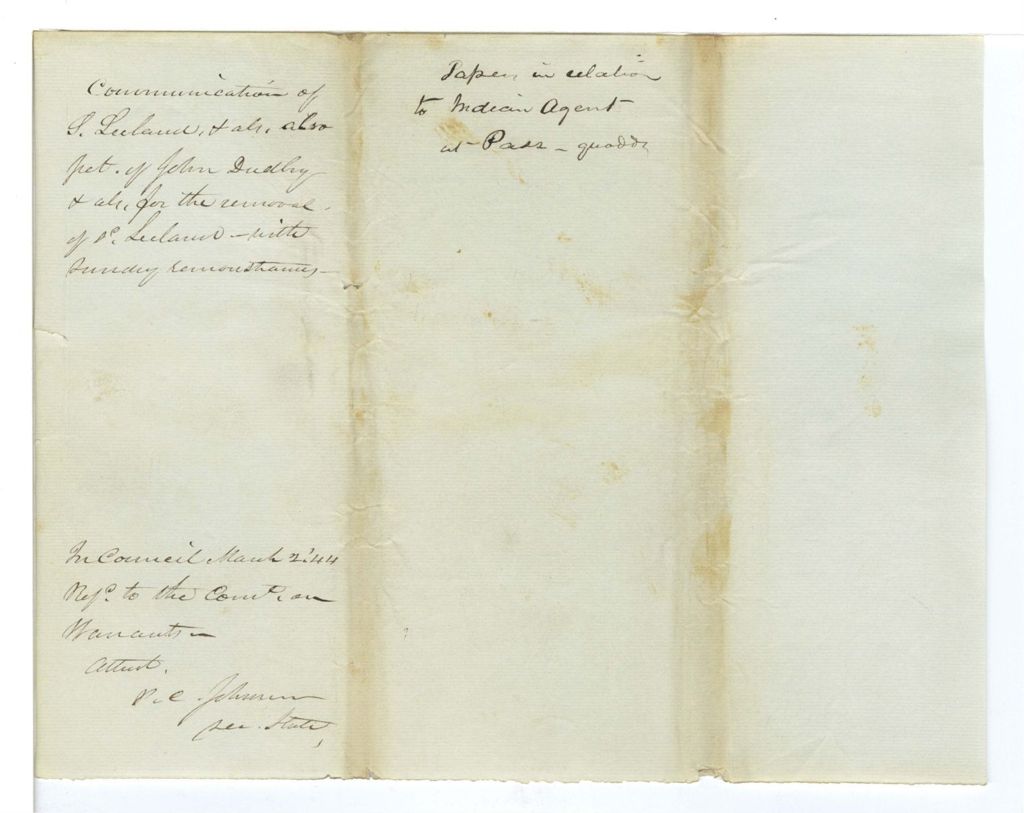 Communication of
S. Leeland, & als, also
pet. of John Dudley
& als, for the removal
of sd. Leeland — with
sundry remonstrances —
In Council March 2. '44
Refd. to the Come. on
Warrants —
Attest.
P. C. Johnson
Sec. State,
Papers in relation
to Indian Agent
at Pass-quoddy